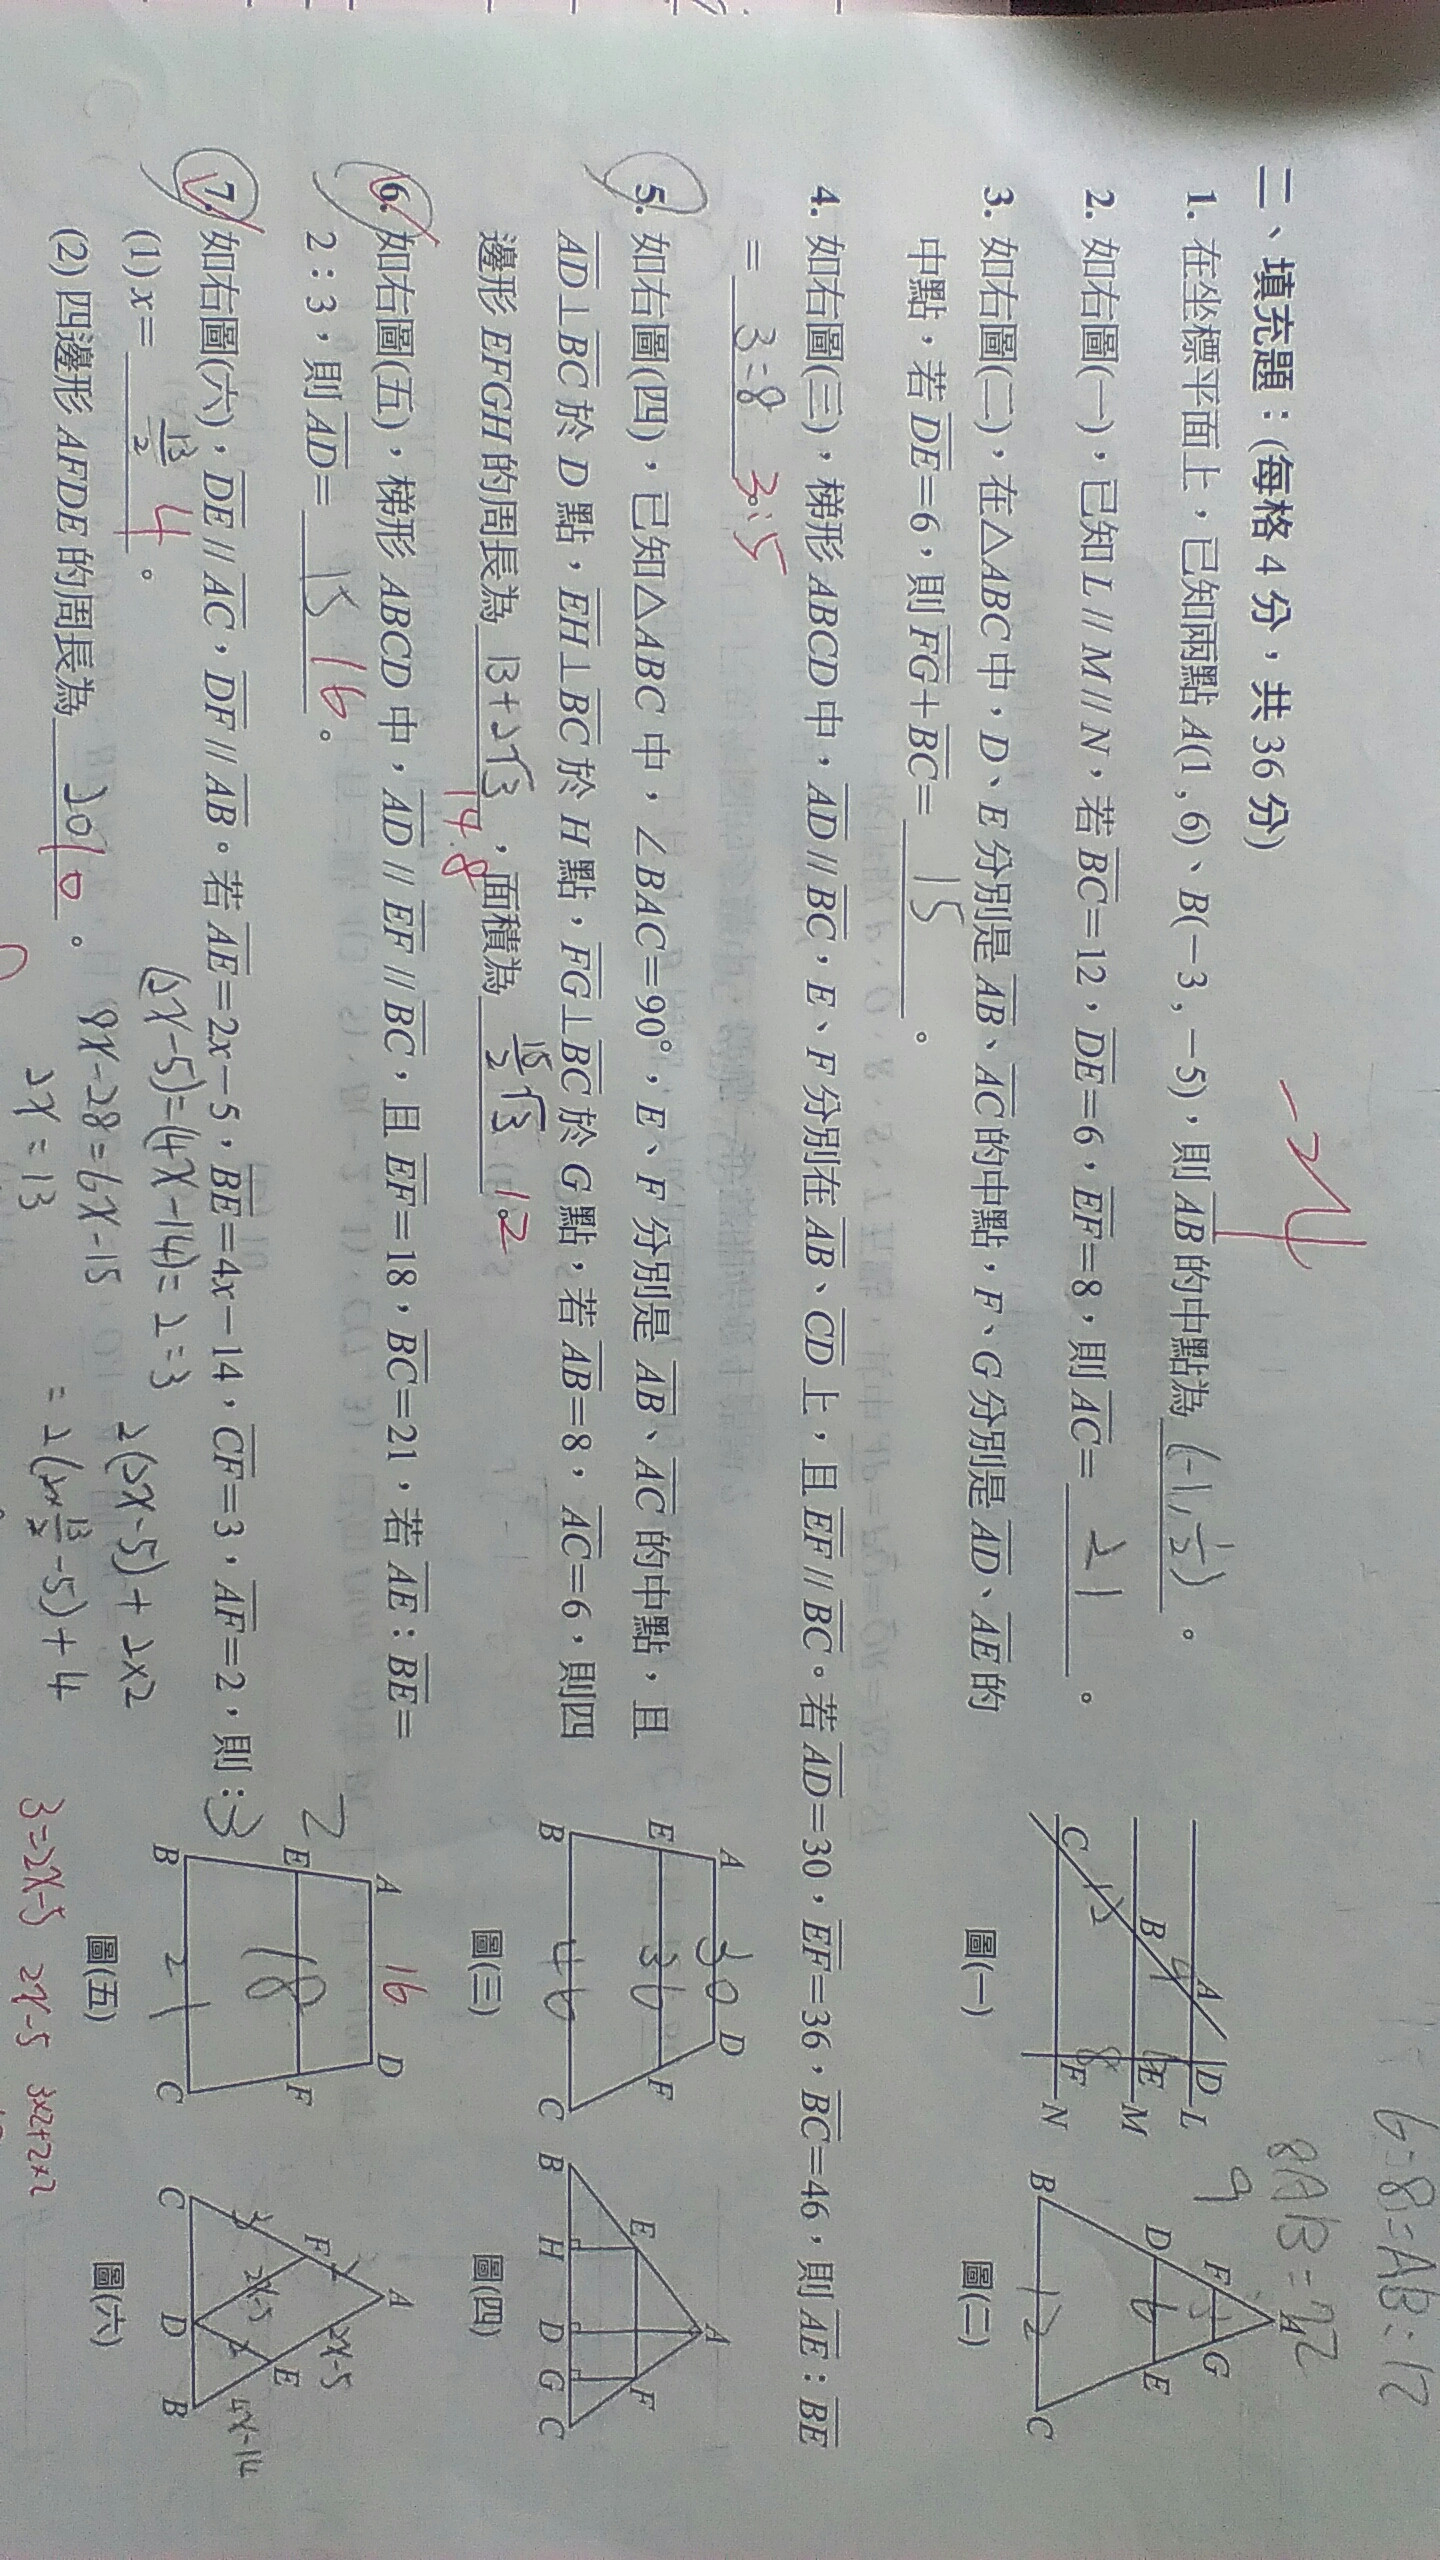 -24
二、填充題：(每格 4 分，共 36 分)
1. 在坐標平面上，已知兩點 A(1 , 6)、B(－3 , －5)，則 AB 的中點為 (-1, 1/2) 。
2. 如右圖(一)，已知 L // M // N，若 BC＝12，DE＝6，EF＝8，則 AC＝ 21 。
3. 如右圖(二)，在△ABC 中，D、E 分別是 AB、AC 的中點，F、G 分別是 AD、AE 的
中點，若 DE＝6，則 FG＋BC＝ 15 。
4. 如右圖(三)，梯形 ABCD 中，AD // BC，E、F 分別在 AB、CD 上，且 EF // BC。若 AD＝30，EF＝36，BC＝46，則 AE：BE
＝ 3:8 3:5
5. 如右圖(四)，已知△ABC 中，∠BAC＝90°，E、F 分別是 AB、AC 的中點，且
AD⊥BC 於 D 點，EH⊥BC 於 H 點，FG⊥BC 於 G 點，若 AB＝8，AC＝6，則四
邊形 EFGH 的周長為 13+2√3 14.8 ，面積為 15/2 √3 12
6. 如右圖(五)，梯形 ABCD 中，AD // EF // BC，且 EF＝18，BC＝21，若 AE：BE＝
2：3，則 AD＝ 15 16 。
7. 如右圖(六)，DE // AC，DF // AB。若 AE＝2x－5，BE＝4x－14，CF＝3，AF＝2，則：
(1) x＝ 13/2 4 。
(2) 四邊形 AFDE 的周長為 20 10 。
(2x-5)=(4x-14)=2=3
8x-28=6x-15
2x=13
2(2x-5)+2x2
=2(2x 13/2 -5)+4
3=2x-5 2x-5 3x2+2x2
6:8=AB:12
8AB=72
9
A D L
B E M
C F N
12
6
8
圖(一)
A
F G
3
D E
6
B C
12
圖(二)
A D
30
E F
36
B C
46
圖(三)
A
E F
B H D G C
圖(四)
16
A D
2
E F
18
3
B C
21
圖(五)
A
2 2x-5
F E
3 2x-5 2 4x-14
C D B
圖(六)